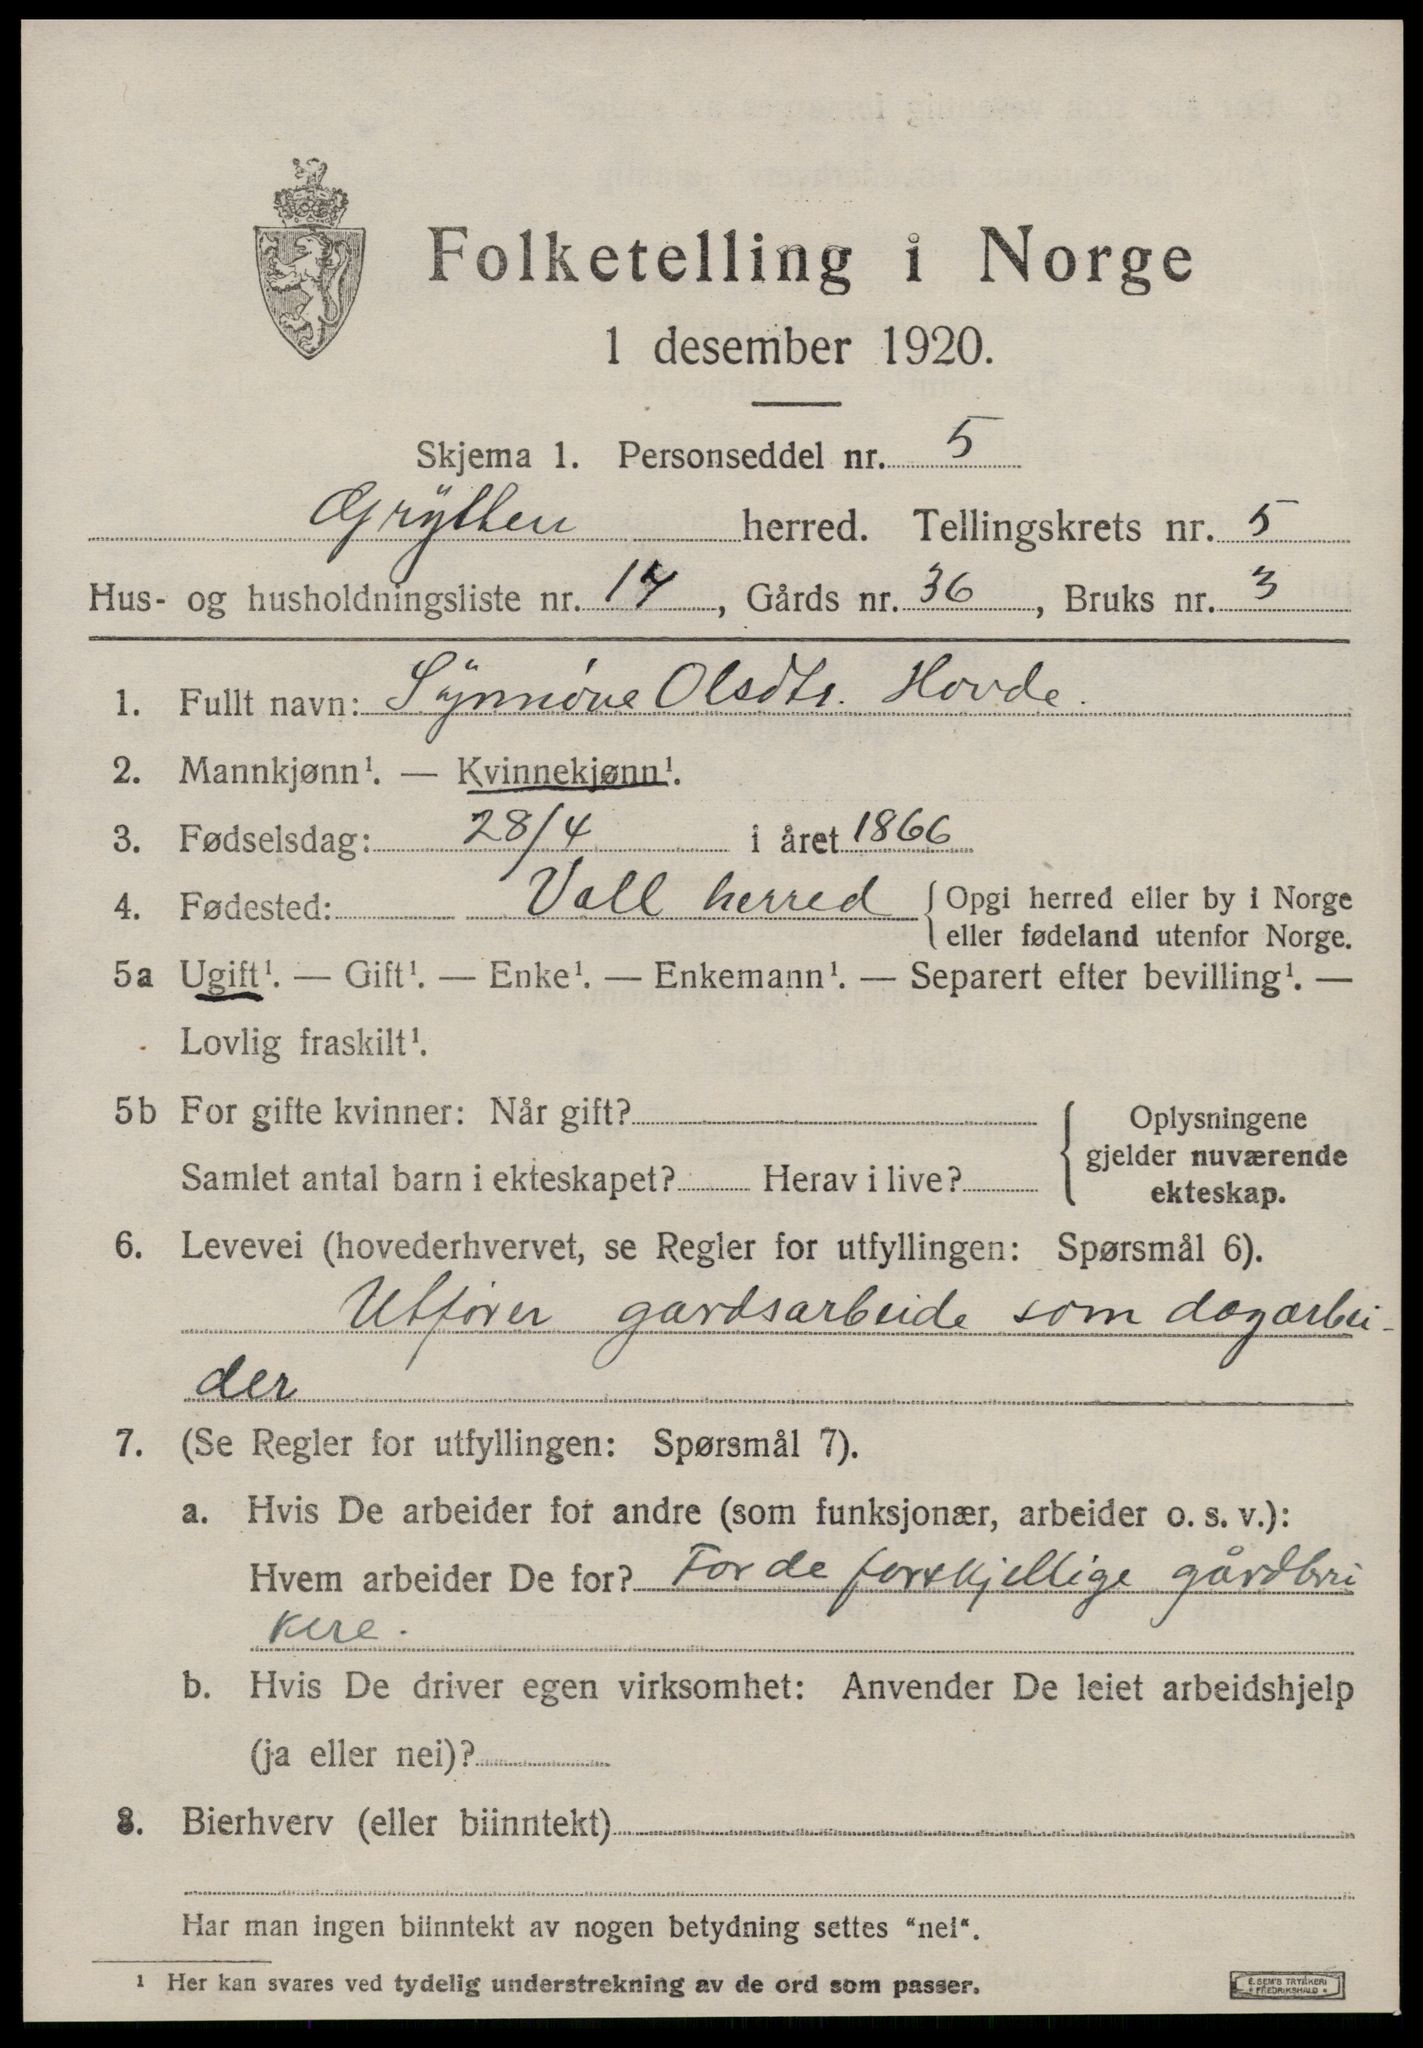 Folketelling i Norge
1 desember 1920.
Skjema 1. Personseddel nr. 5
Grÿtten herred. Tellingskrets nr. 5
Hus- og husholdningsliste nr. 17, Gårds nr. 36, Bruks nr. 3
1. Fullt navn: Sÿnnöve Olsdtr. Hovde.
2. Mannkjønn¹. — Kvinnekjønn¹.
3. Fødselsdag: 28/4 i året 1866
4. Fødested: Voll herred { Opgi herred eller by i Norge
eller fødeland utenfor Norge.
5a Ugift¹. — Gift¹. — Enke¹. — Enkemann¹. — Separert efter bevilling¹. —
Lovlig fraskilt¹.
5b For gifte kvinner: Når gift?
Samlet antal barn i ekteskapet? Herav i live?
Oplysningene
gjelder nuværende
ekteskap.
6. Levevei (hovederhvervet, se Regler for utfyllingen: Spørsmål 6).
Utfører gardsarbeide som dagarbei-
der
7. (Se Regler for utfyllingen: Spørsmål 7).
a. Hvis De arbeider for andre (som funksjonær, arbeider o. s. v.):
Hvem arbeider De for? For de forskjellige gårdbru
kere.
b. Hvis De driver egen virksomhet: Anvender De leiet arbeidshjelp
(ja eller nei)?
8. Bierhverv (eller biinntekt)
Har man ingen biinntekt av nogen betydning settes "nei".
¹ Her kan svares ved tydelig understrekning av de ord som passer.
E. SEM'S TRYKKERI
FREDRIKSHALD